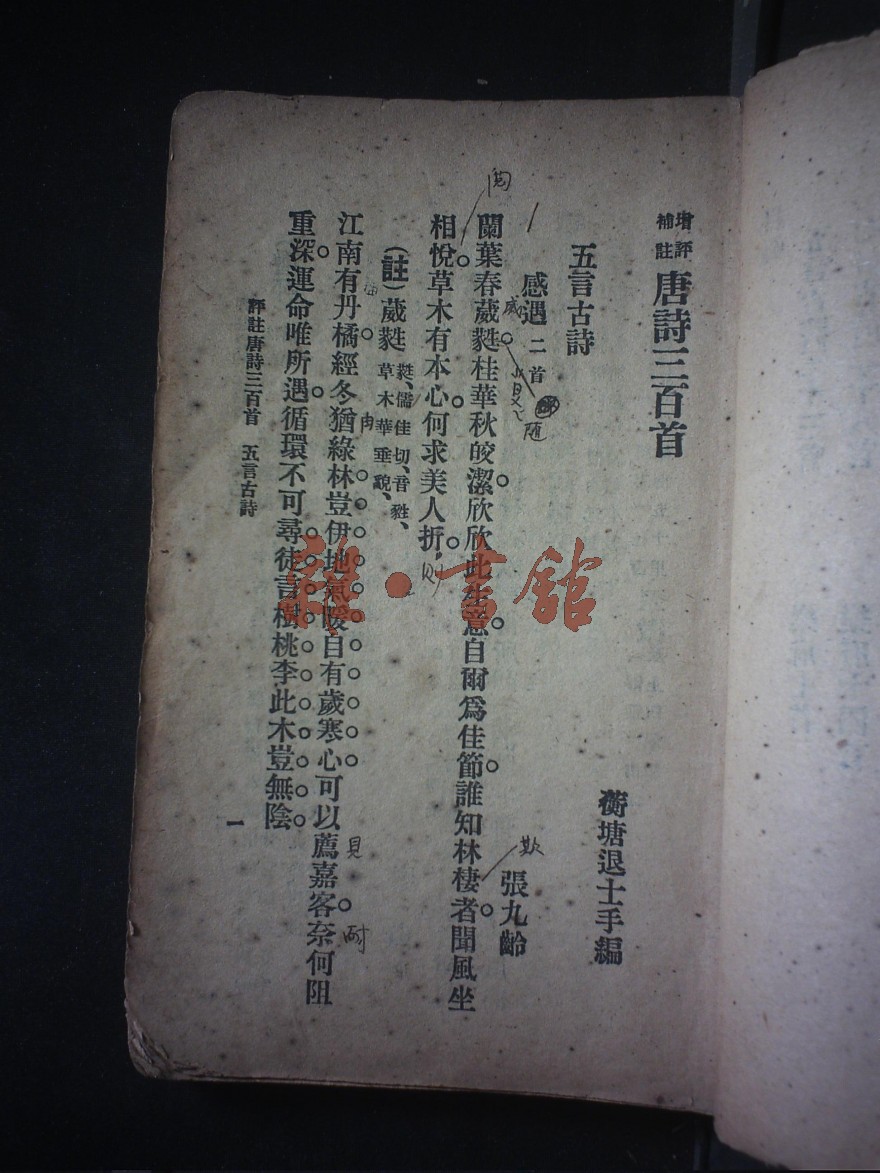 增評補註 唐詩三百首
蘅塘退士手編
五言古詩
感遇 二首 張九齡
蘭葉春葳蕤。桂華秋皎潔。欣欣此生意。自爾爲佳節。誰知林棲者。聞風坐
相悅。草木有本心。何求美人折。
(註)葳蕤 蕤、儒佳切、音甤、草木華垂貌、
江南有丹橘。經冬猶綠林。豈伊地氣暖。自有歲寒心。可以薦嘉客。奈何阻
重深。運命唯所遇。循環不可尋。徒言樹桃李。此木豈無陰。
評註唐詩三百首 五言古詩
一
威
隨
欺
則
見
耐
雜·書館